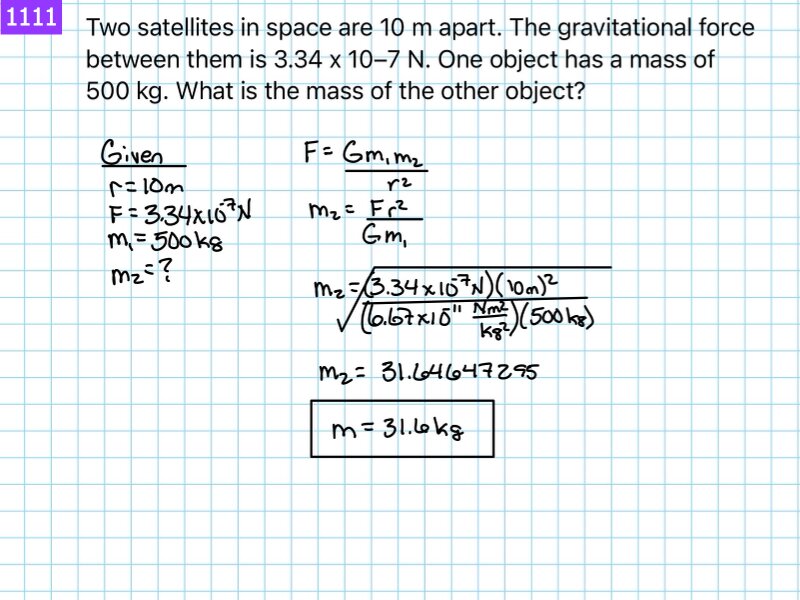 1111
Two satellites in space are 10 m apart. The gravitational force
between them is 3.34 x 10–7 N. One object has a mass of
500 kg. What is the mass of the other object?
Given
r = 10m
F = 3.34x10⁻⁷N
m₁ = 500 kg
m₂ = ?
F = Gm₁m₂ / r²
m₂ = Fr² / Gm₁
m₂ = √((3.34x10⁻⁷N)(10m)² / (6.67x10⁻¹¹ Nm²/kg²)(500kg))
m₂ = 31.64647295
m = 31.6kg